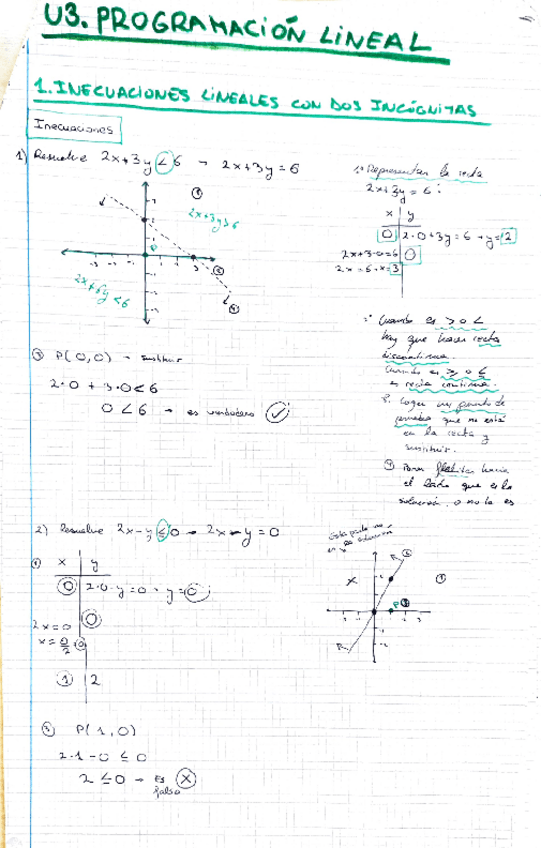 U3. PROGRAMACIÓN LINEAL
1. INECUACIONES LINEALES CON DOS INCÓGNITAS
Inecuaciones
1) Resuelve 2x+3y < 6 → 2x+3y = 6
1: Representar la recta
2x+3y = 6:
x | y
0 | 2·0+3y = 6 → y = 2
2x+3·0=6 | 0
2x = 6 · x = 3
①
2x+3y>6
2x+3y<6
②
④
2: Cuando es > o <
hay que hacer recta
discontinua.
Cuando es ≥ o ≤
es recta continua.
3. Coger un punto de
prueba que no está
en la recta y
sustituir.
④ Para hacia
el lado que es la
solución, o no la es
③ P(0,0) → sustituir
2·0 + 3·0 < 6
0 < 6 → es verdadero ✓
2) Resuelve 2x-y ≤ 0 → 2x-y = 0
① x | y
0 | 2·0-y=0 · y=0
2x=0 | 0
x = 0/2 = 0
1 | 2
Esta parte no
es solución
③ P(1,0)
2·1-0 ≤ 0
2 ≤ 0 → Es X
falso